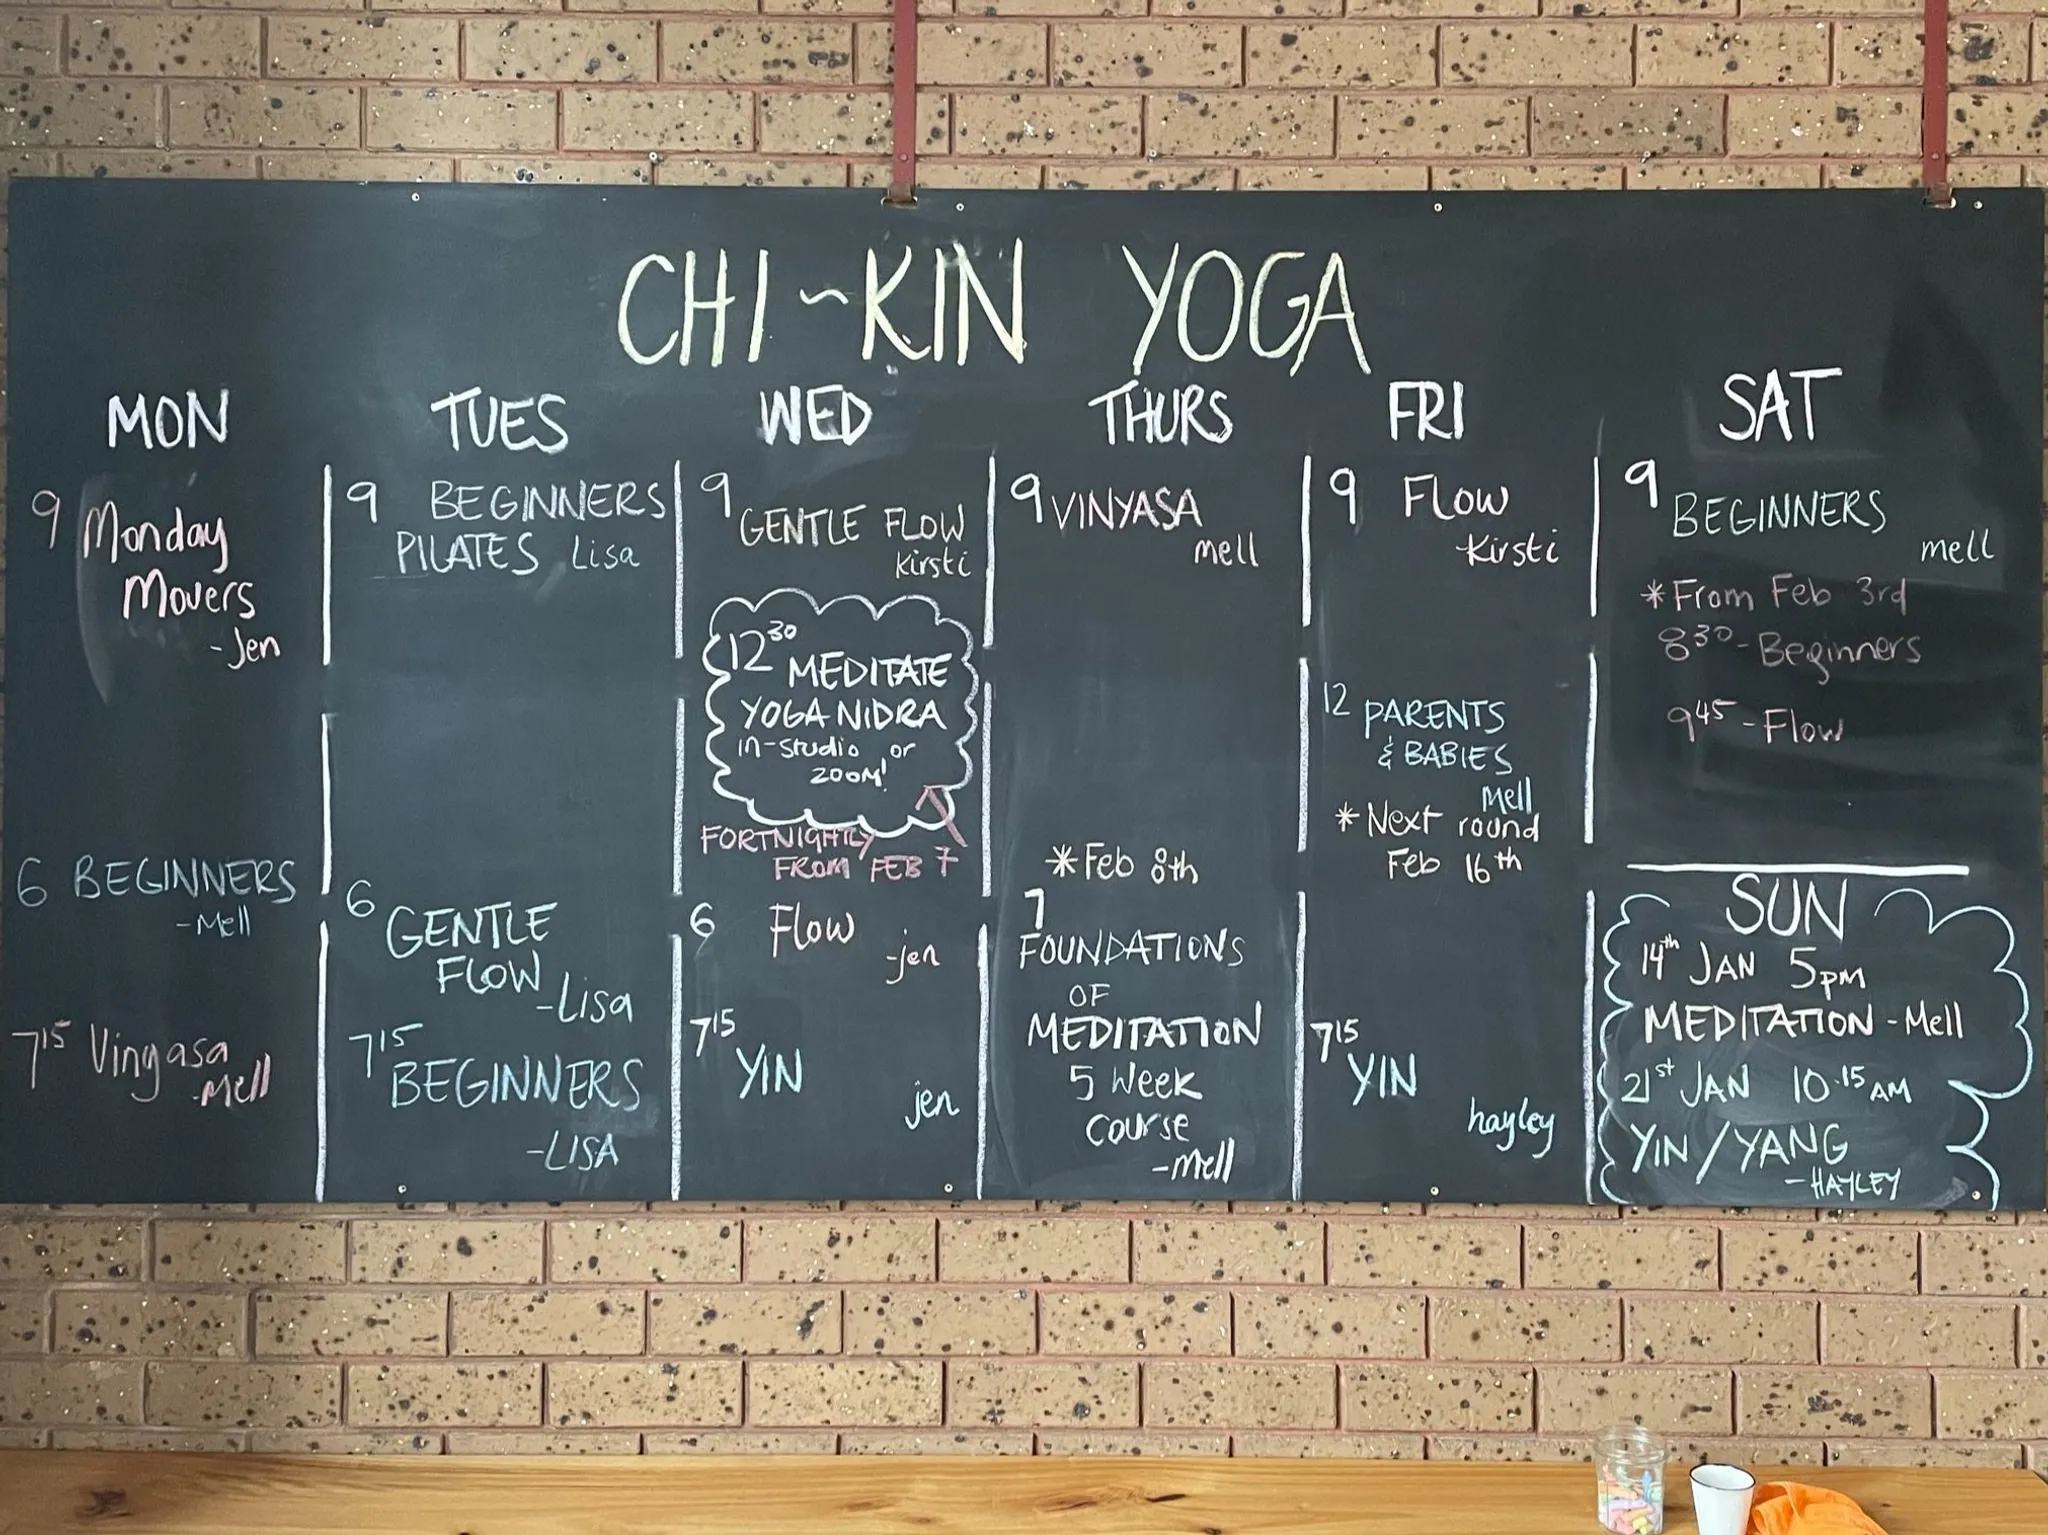 CHI~KIN YOGA
MON
9 Monday
Movers
-Jen
6 BEGINNERS
-Mell
7¹⁵ Vinyasa
-Mell
TUES
9 BEGINNERS
PILATES Lisa
6 GENTLE
FLOW
-Lisa
7¹⁵
BEGINNERS
-LISA
WED
9
GENTLE FLOW
Kirsti
12³⁰
MEDITATE
YOGA NIDRA
in-studio or
ZOOM!
FORTNIGHTLY
FROM FEB 7
6 Flow
-jen
7¹⁵
YIN
jen
THURS
9 VINYASA
mell
*Feb 8th
7
FOUNDATIONS
OF
MEDITATION
5 Week
course
-mell
FRI
9 Flow
-Kirsti
12 PARENTS
& BABIES
Mell
* Next round
Feb 16th
7¹⁵
YIN
hayley
SAT
9
BEGINNERS
mell
*From Feb 3rd
8³⁰-Beginners
9⁴⁵-Flow
SUN
14th JAN 5pm
MEDITATION-Mell
21st JAN 10.15AM
YIN/YANG
-HAYLEY